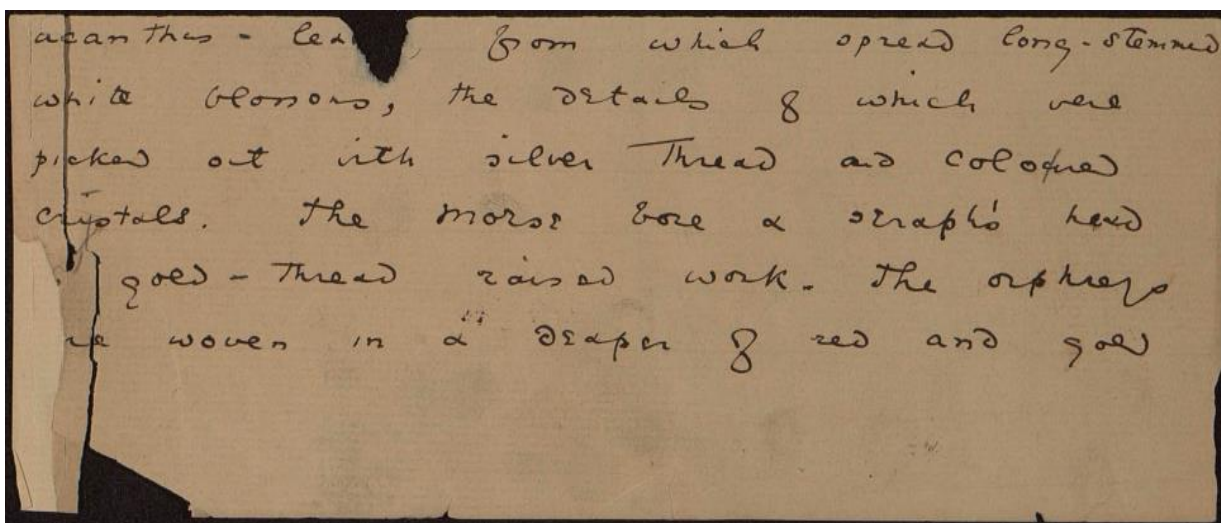 acanthus - lea , from which spread long-stemmed
white blossoms, the details of which were
picked out with silver thread and coloured
crystals. The morse bore a seraph's head
gold - thread raised work. The orphreys
re woven in a diaper of red and gold